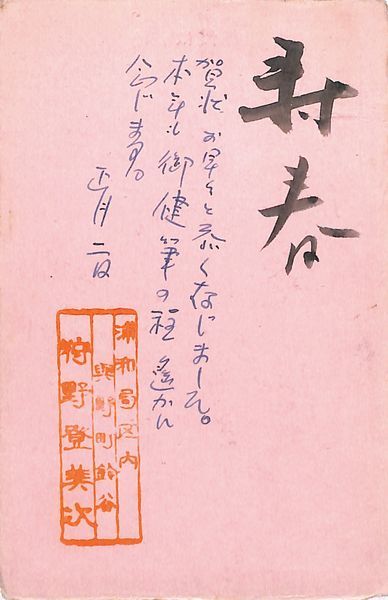 寿春
賀状お早々と忝く存じました。
本年も御健筆の程遙かに
念じます。
正月二日
浦和局区内
與野町鈴谷
狩野登美次